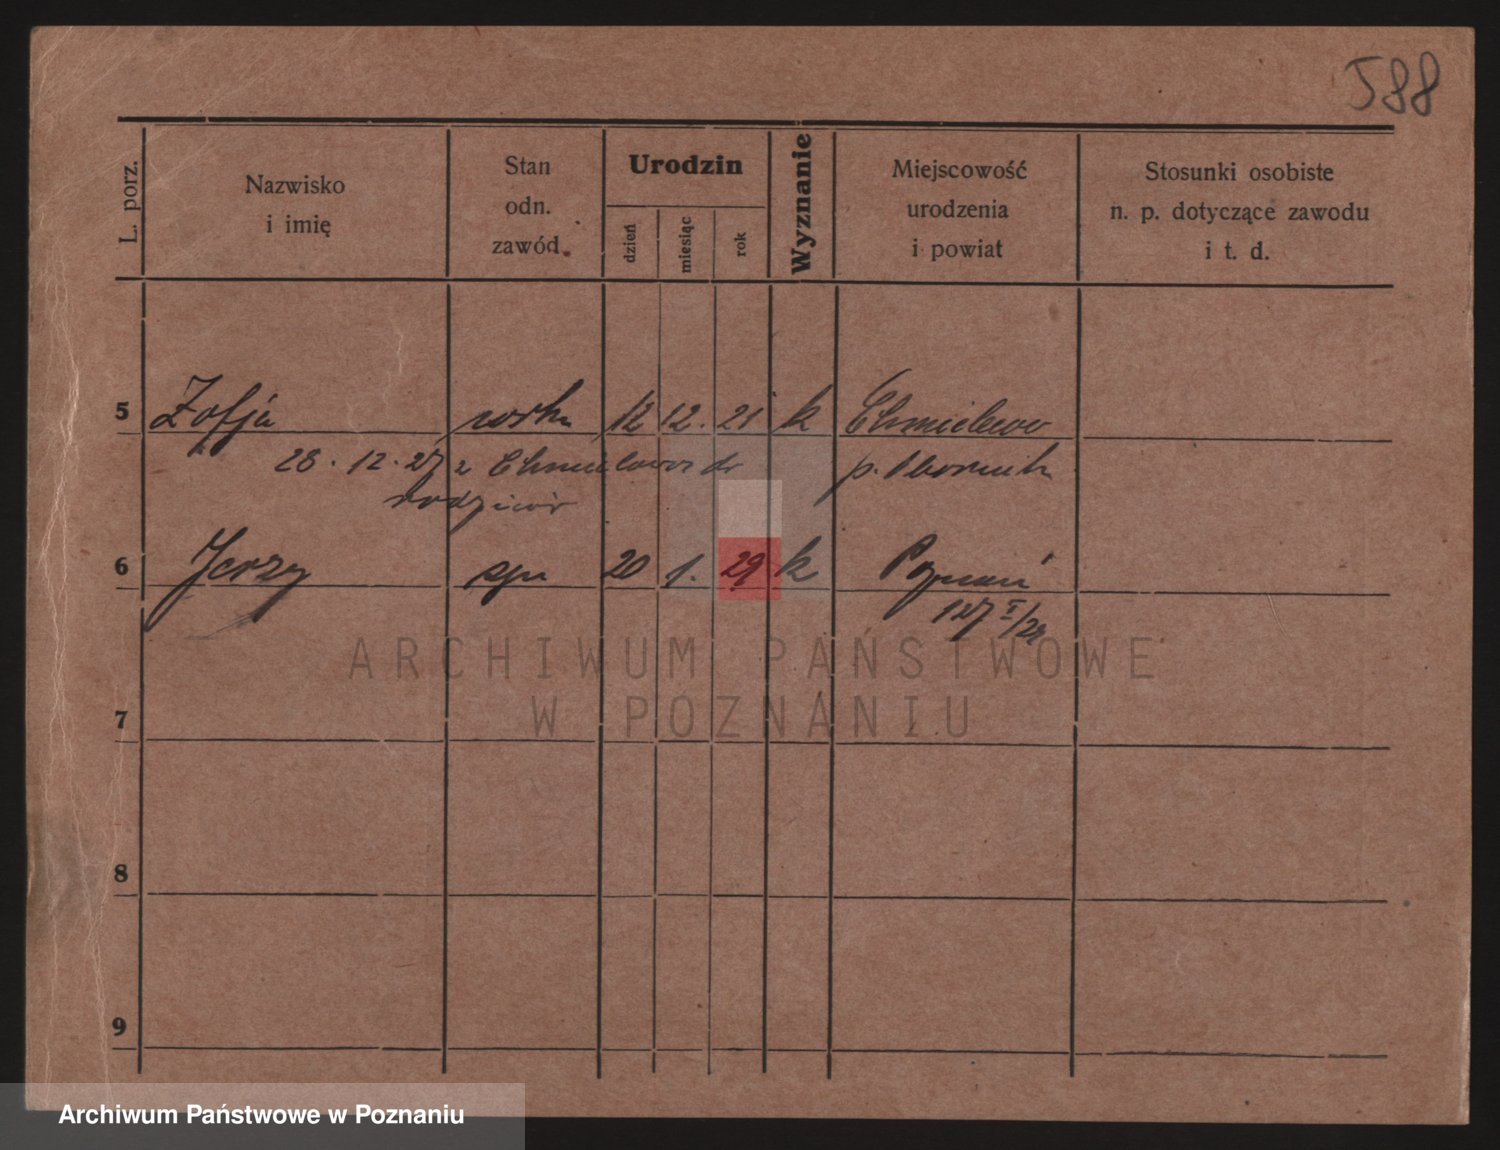 588
L. porz.
Nazwisko
i imię
Stan
odn.
zawód.
Urodzin
dzień
miesiąc
rok
Wyznanie
Miejscowość
urodzenia
i powiat
Stosunki osobiste
n. p. dotyczące zawodu
i t. d.
5 Zofja 12 12. 21 k Chmielewo
28. 12. 27 z do
rodziców
6 Jerzy syn 20 1. 29 k Poznań
127 I/29
ARCHIWUM PAŃSTWOWE
W POZNANIU
7
8
9
Archiwum Państwowe w Poznaniu